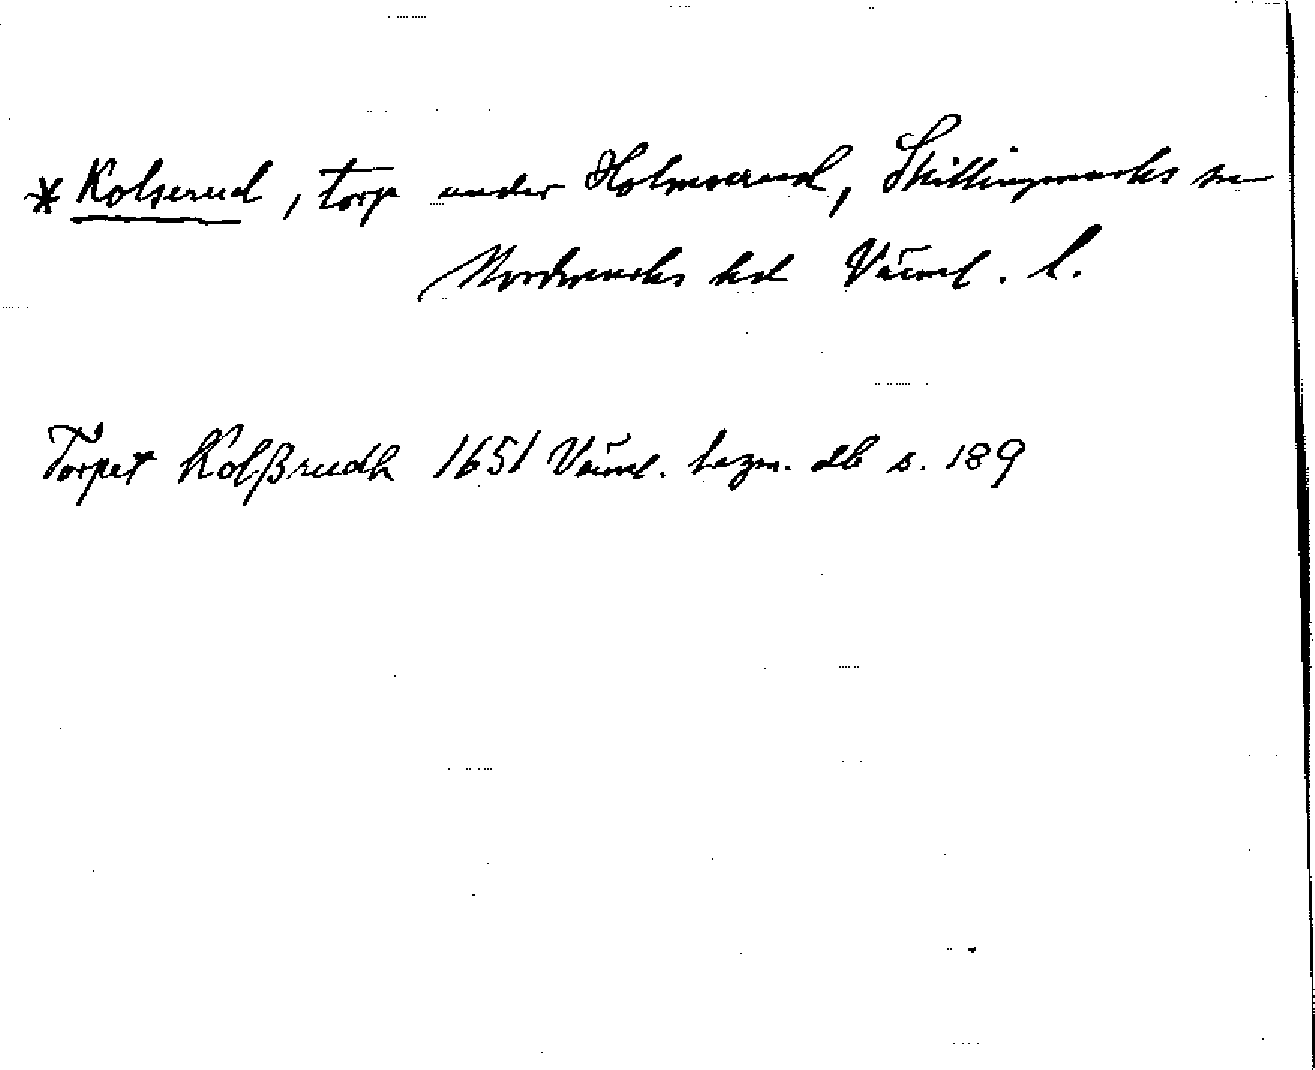 * Kolserud, torp under Holmserud, Skillingmarks sn
Nordmarks hd Värml. l.
Torpet Kolßrudh 1651 Värml. bergm. db s. 189